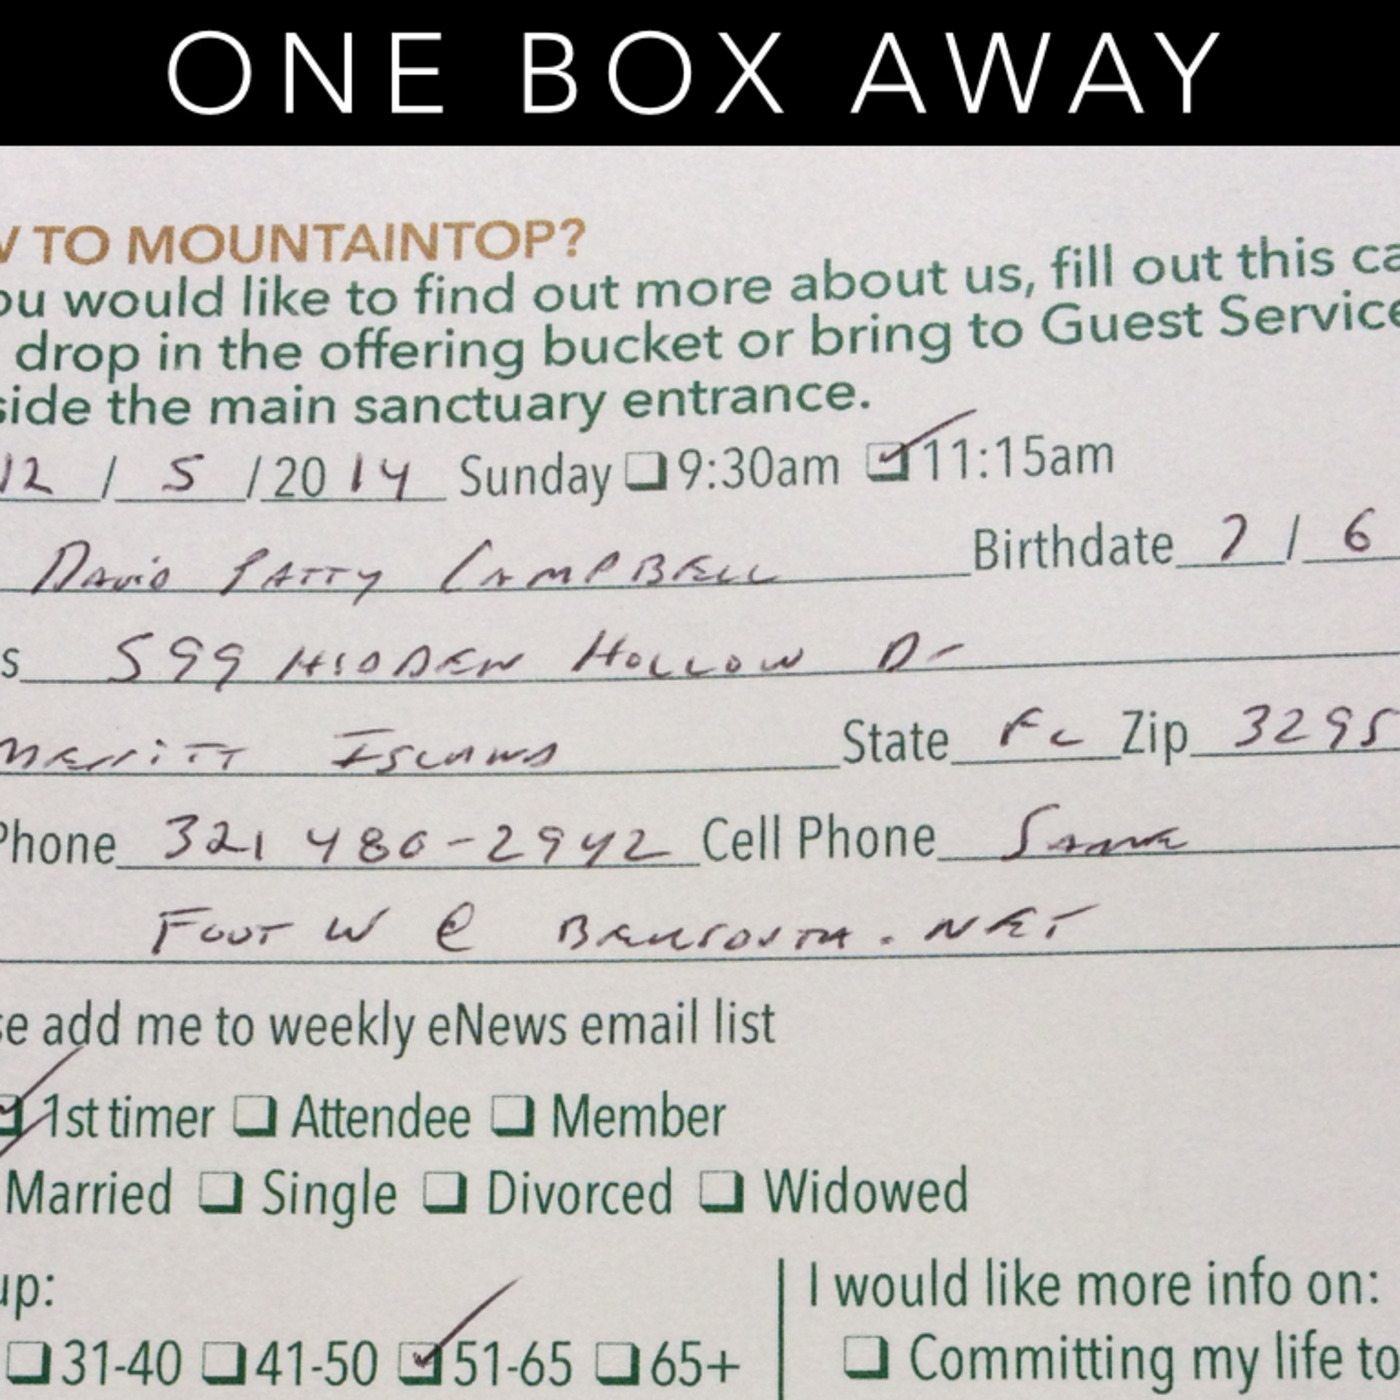 ONE BOX AWAY
W TO MOUNTAINTOP?
ou would like to find out more about us, fill out this ca
drop in the offering bucket or bring to Guest Service
side the main sanctuary entrance.
12 / 5 / 20 14 Sunday ❑ 9:30am ❑ 11:15am
David Patty Campbell Birthdate 7 / 6
s 599 Hidden Hollow Dr
Merritt Island State FL Zip 3295
Phone 321 480-2942 Cell Phone Same
Foot W @ .NET
se add me to weekly eNews email list
1st timer ❑ Attendee ❑ Member
Married ❑ Single ❑ Divorced ❑ Widowed
up: I would like more info on:
❑ 31-40 ❑ 41-50 ❑ 51-65 ❑ 65+ ❑ Committing my life to